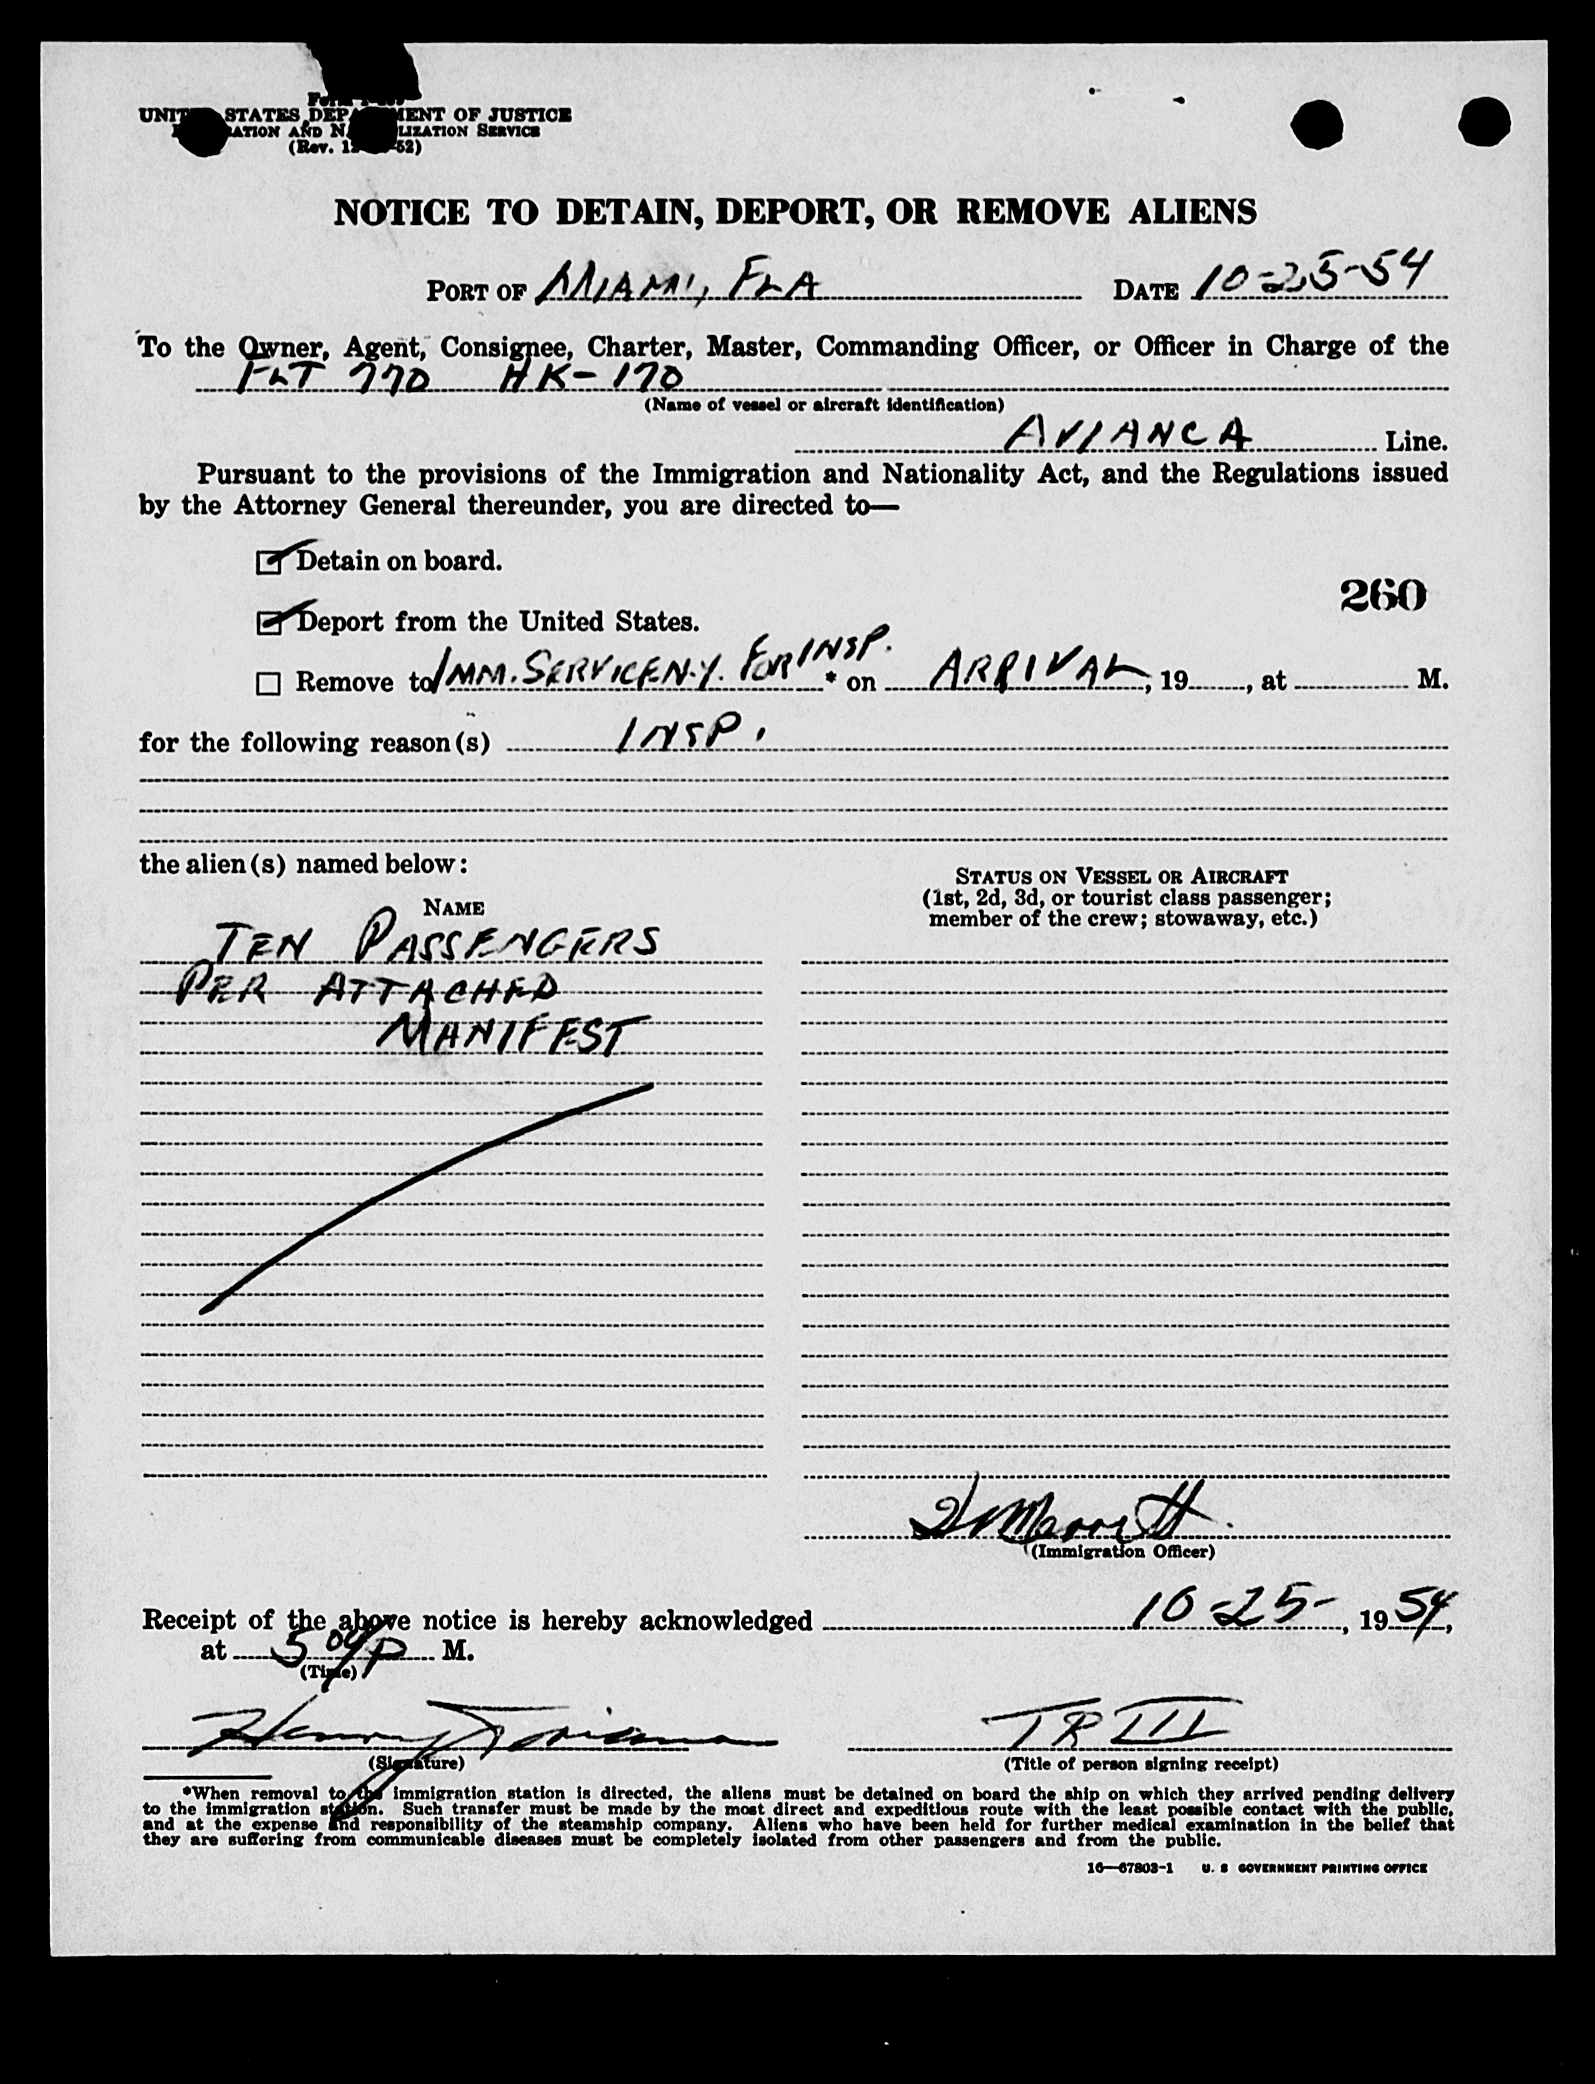 Form
UNITED STATES DEPARTMENT OF JUSTICE
AND NATURALIZATION SERVICE
(Rev. 52)
NOTICE TO DETAIN, DEPORT, OR REMOVE ALIENS
PORT OF MIAMI, FLA DATE 10-25-54
To the Owner, Agent, Consignee, Charter, Master, Commanding Officer, or Officer in Charge of the
FLT 770 HK-170
(Name of vessel or aircraft identification)
AVIANCA Line.
Pursuant to the provisions of the Immigration and Nationality Act, and the Regulations issued
by the Attorney General thereunder, you are directed to—
Detain on board.
260
Deport from the United States.
Remove to IMM. SERVICE N.Y. FOR INSP. * on ARRIVAL, 19, at M.
for the following reason(s) INSP.
the alien(s) named below:
NAME
STATUS ON VESSEL OR AIRCRAFT
(1st, 2d, 3d, or tourist class passenger;
member of the crew; stowaway, etc.)
TEN PASSENGERS
PER ATTACHED
MANIFEST
Merritt
(Immigration Officer)
Receipt of the above notice is hereby acknowledged 10-25-, 1954,
at 5 04 P M.
(Time)
Henry
TR III
(Signature)
(Title of person signing receipt)
*When removal to the immigration station is directed, the aliens must be detained on board the ship on which they arrived pending delivery
to the immigration station. Such transfer must be made by the most direct and expeditious route with the least possible contact with the public,
and at the expense and responsibility of the steamship company. Aliens who have been held for further medical examination in the belief that
they are suffering from communicable diseases must be completely isolated from other passengers and from the public.
16—67803-1 U. S GOVERNMENT PRINTING OFFICE